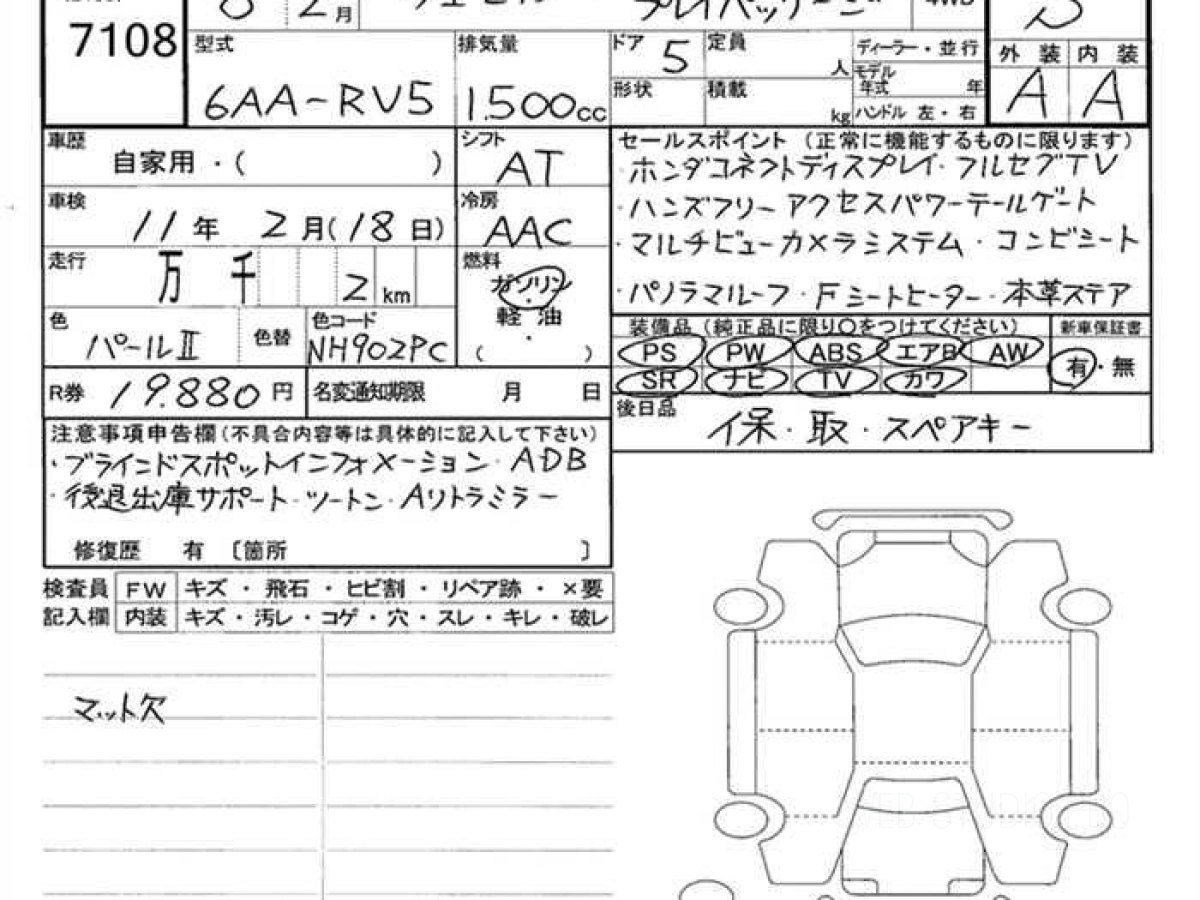 7108
月
プレイパッケージ
型式
6AA-RV5
排気量
1.500cc
ドア 5
形状
定員 人
積載 kg
ディーラー・並行
モデル年式 年
ハンドル 左・右
外装 内装
A A
車歴
自家用・( )
シフト
AT
車検
11年 2月(18日)
冷房
AAC
走行
万 千 2 km
燃料
ガソリン
・
軽・油
・
( )
色
パールⅡ
色替
色コード
NH902PC
R券 19.880円
名変通知期限 月 日
セールスポイント (正常に機能するものに限ります)
・ホンダコネクトディスプレイ・フルセグTV
・ハンズフリーアクセスパワーテールゲート
・マルチビューカメラシステム・コンビシート
・パノラマルーフ・Fシートヒーター・本革ステア
装備品 (純正品に限り○をつけてください)
新車保証書
PS PW ABS エアB AW
SR ナビ TV カワ
有・無
後日品
保・取・スペアキー
注意事項申告欄(不具合内容等は具体的に記入して下さい)
・ブラインドスポットインフォメーション・ADB
・後退出庫サポート・ツートン・Aリトラミラー
修復歴 有 〔箇所 〕
検査員 FW キズ・飛石・ヒビ割・リペア跡・×要
記入欄 内装 キズ・汚レ・コゲ・穴・スレ・キレ・破レ
マット欠